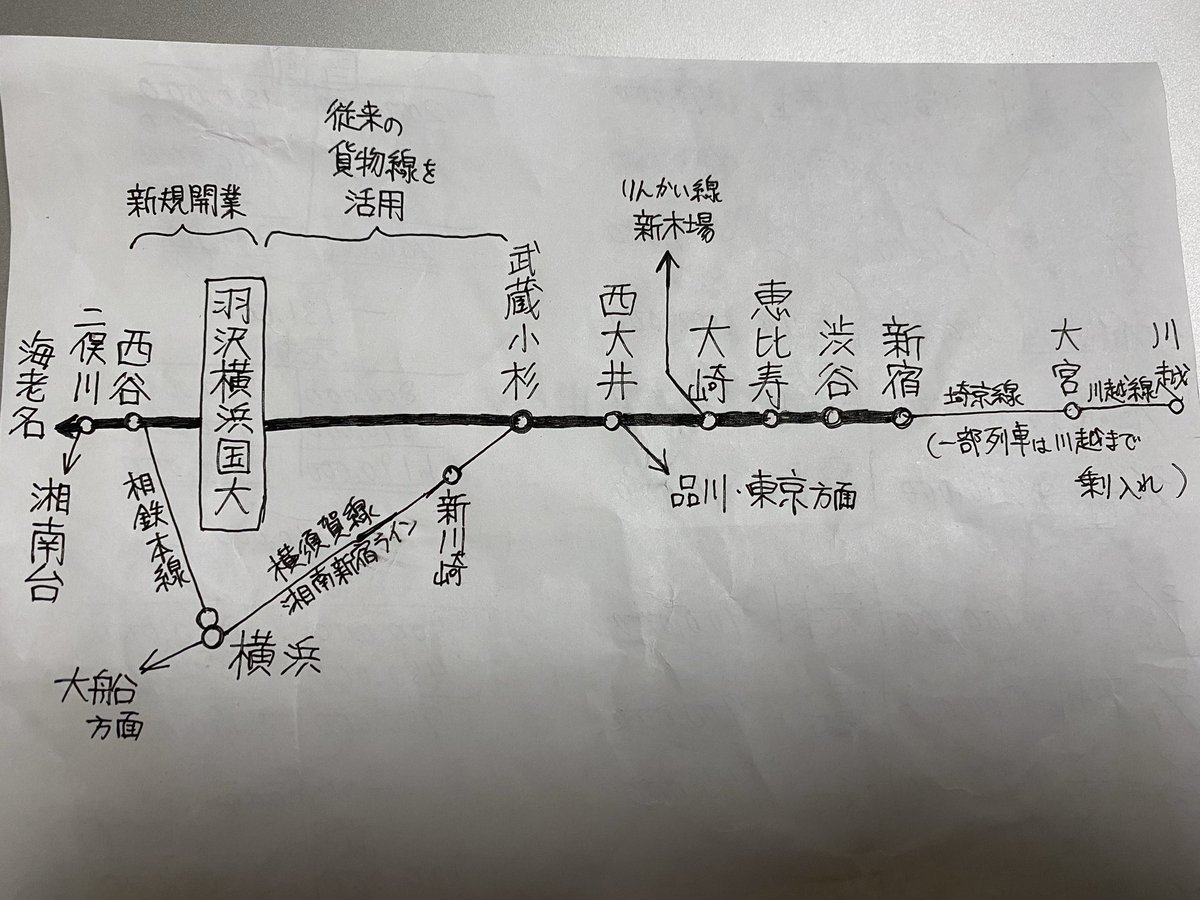 従来の
貨物線を
活用
新規開業
りんかい線
新木場
海老名
二俣川
西谷
羽沢横浜国大
武蔵小杉
西大井
大崎
恵比寿
渋谷
新宿
埼京線
大宮
川越線
川越
(一部列車は川越まで
乗入れ)
湘南台
相鉄本線
横須賀線
湘南新宿ライン
新川崎
品川・東京方面
横浜
大船
方面